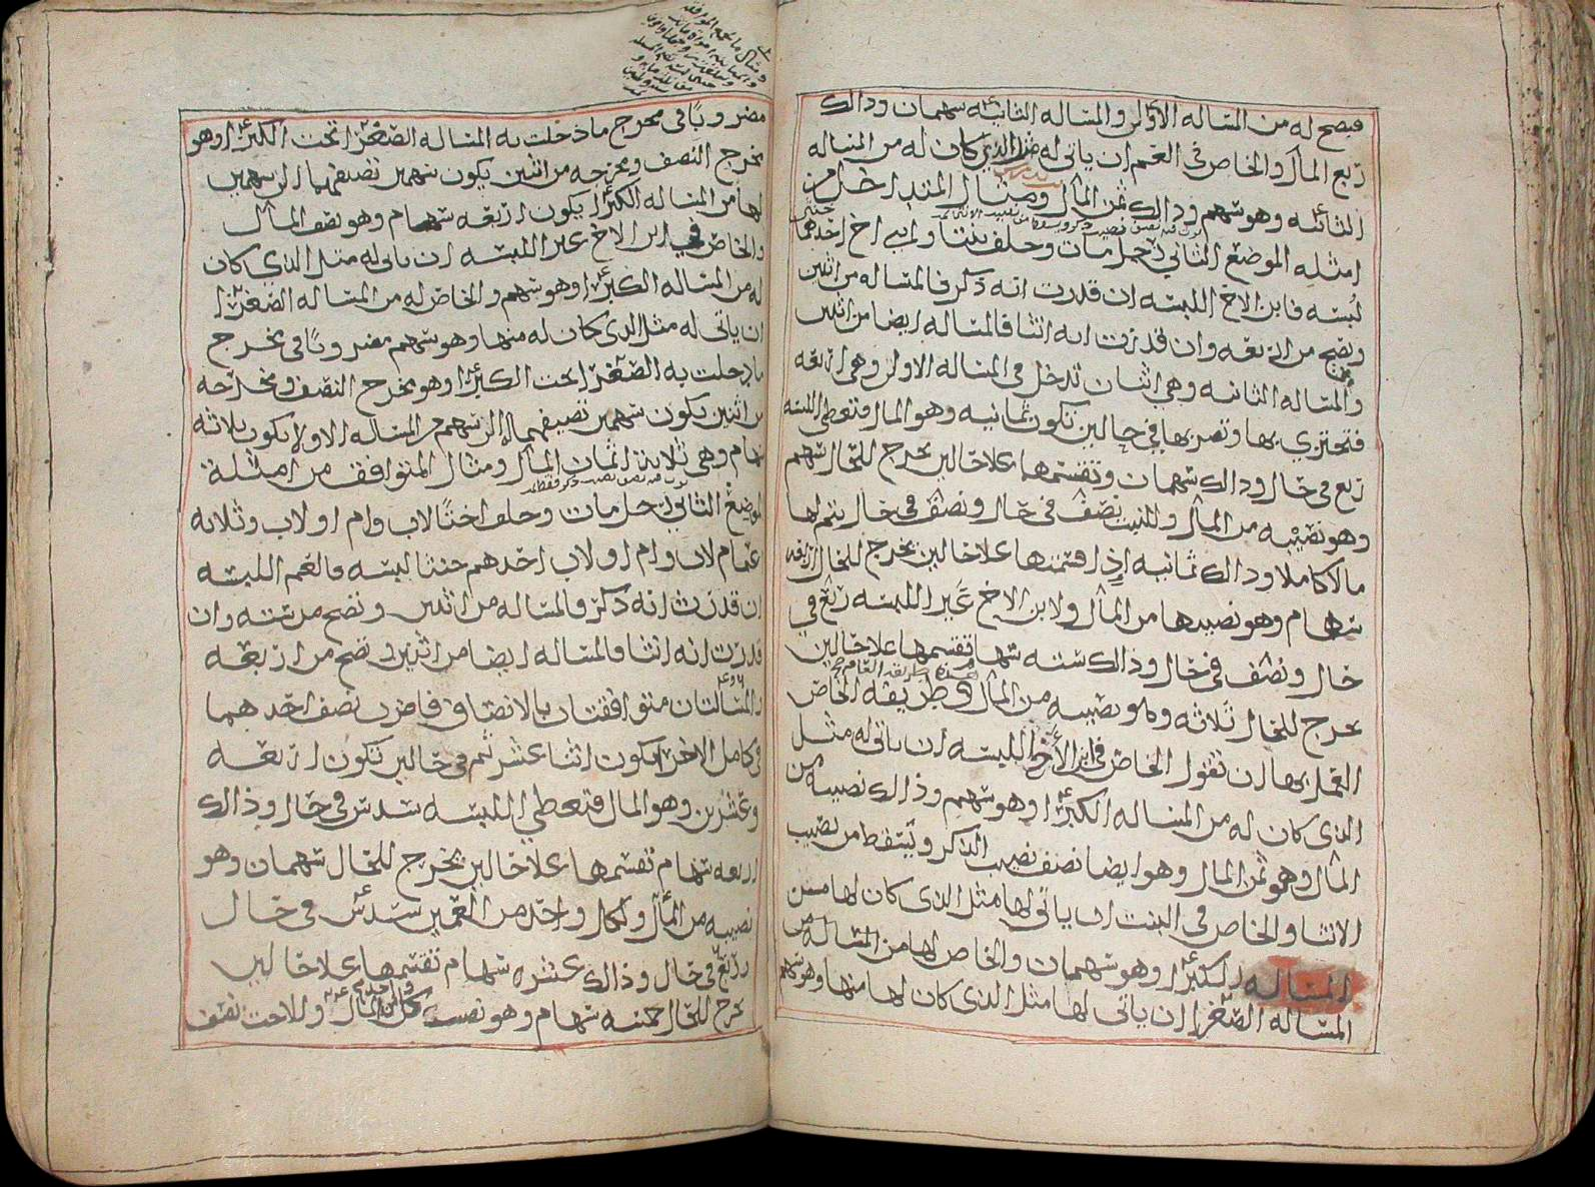 فيصح له من المساله الأولى والمساله الثانيه سهمان وذالك
ربع المال والخاص في العم ان ياتي له مثل الذي كان له من المساله
الثانيه وهو سهم وذالك ثمن المال ومثال المتداخل من
امثله الموضع الثاني رجل مات وخلف بنتا وابني اخ احدهما خنثى
لبسه فابن الاخ اللبسه ان قدرت انه ذكر فالمساله من اثنين
وتصح من اربعه وان قدرت انه انثا فالمساله ايضا من اثنين
والمساله الثانيه وهي اثنان تدخل في المساله الاولى وهي اربعه
فتجتزي بها وتضربها في حالين تكون ثمانيه وهو المال فتعطى اللبسه
ربع في حال وذالك سهمان وتقسمها علا حالين يخرج للحال سهم
وهو نصيبه من المال وللبنت نصف في حال ونصف في حال يتم لها
مالا كاملا وذالك ثمانيه إذا قسمتها علا حالين يخرج للحال اربعه
سهام وهو نصيبها من المال ولابن الاخ غير اللبسه ربع في
حال ونصف في حال وذالك سته سهام تقسمها علا حالين
يخرج للحال ثلاثه وهو نصيبه من المال وطريقه الخاص
العمل بها ان تقول الخاص في ابن الأخ اللبسه ان ياتي له مثل
الذي كان له من المساله الكبرا وهو سهم وذالك نصيبه من
المال وهو ثمن المال وهو ايضا نصف نصيب الذكر ويسقط من نصيب
الانثا والخاص في البنت ان ياتي لها مثل الذي كان لها من
المساله الكبرا وهو سهمان والخاص لها من المساله
المساله الصغرا ان ياتي لها مثل الذي كان لها منها وهو سهم
مضروبا في مخرج ما دخلت به المساله الصغرا تحت الكبرا وهو
مخرج النصف ومخرجه من اثنين يكون سهمين تضيفهما الى سهمين
لها من المساله الكبرا يكون اربعه سهام وهو نصف المال
والخاص في ابن الاخ غير اللبسه ان ياتي له مثل الذي كان
له من المساله الكبرا وهو سهم والخاص له من المساله الصغرا
ان ياتي له مثل الذي كان له منها وهو سهم مضروبا في مخرج
ما دخلت به الصغرا تحت الكبرا وهو مخرج النصف ومخرجه
من اثنين يكون سهمين تضيفهما الى سهم من المساله الاولا يكون ثلاثه
سهام وهي ثلاثه اثمان المال ومثال المتوافق من امثلة
الموضع الثاني رجل مات وخلف اختا لاب وام او لاب وثلاثه
اعمام لاب وام او لاب احدهم خنثا لبسه فالعم اللبسه
ان قدرت انه ذكر فالمساله من اثنين وتصح من سته وان
قدرت انه انثا فالمساله ايضا من اثنين وتصح من اربعه
والمسالتان متوافقتان بالانصاف فاضرب نصف احدهما
في كامل الاخرا يكون اثنا عشر ثم في حالين تكون اربعه
وعشرين وهو المال فتعطي اللبسه سدس في حال وذالك
اربعه سهام تقسمها علا حالين يخرج للحال سهمان وهو
نصيبه من المال ولكل واحد من العمين سدس في حال
وربع في حال وذالك عشره سهام تقسمها علا حالين
يخرج للحال خمسه سهام وهو نصيب كل واحد من المال وللاخت نصف